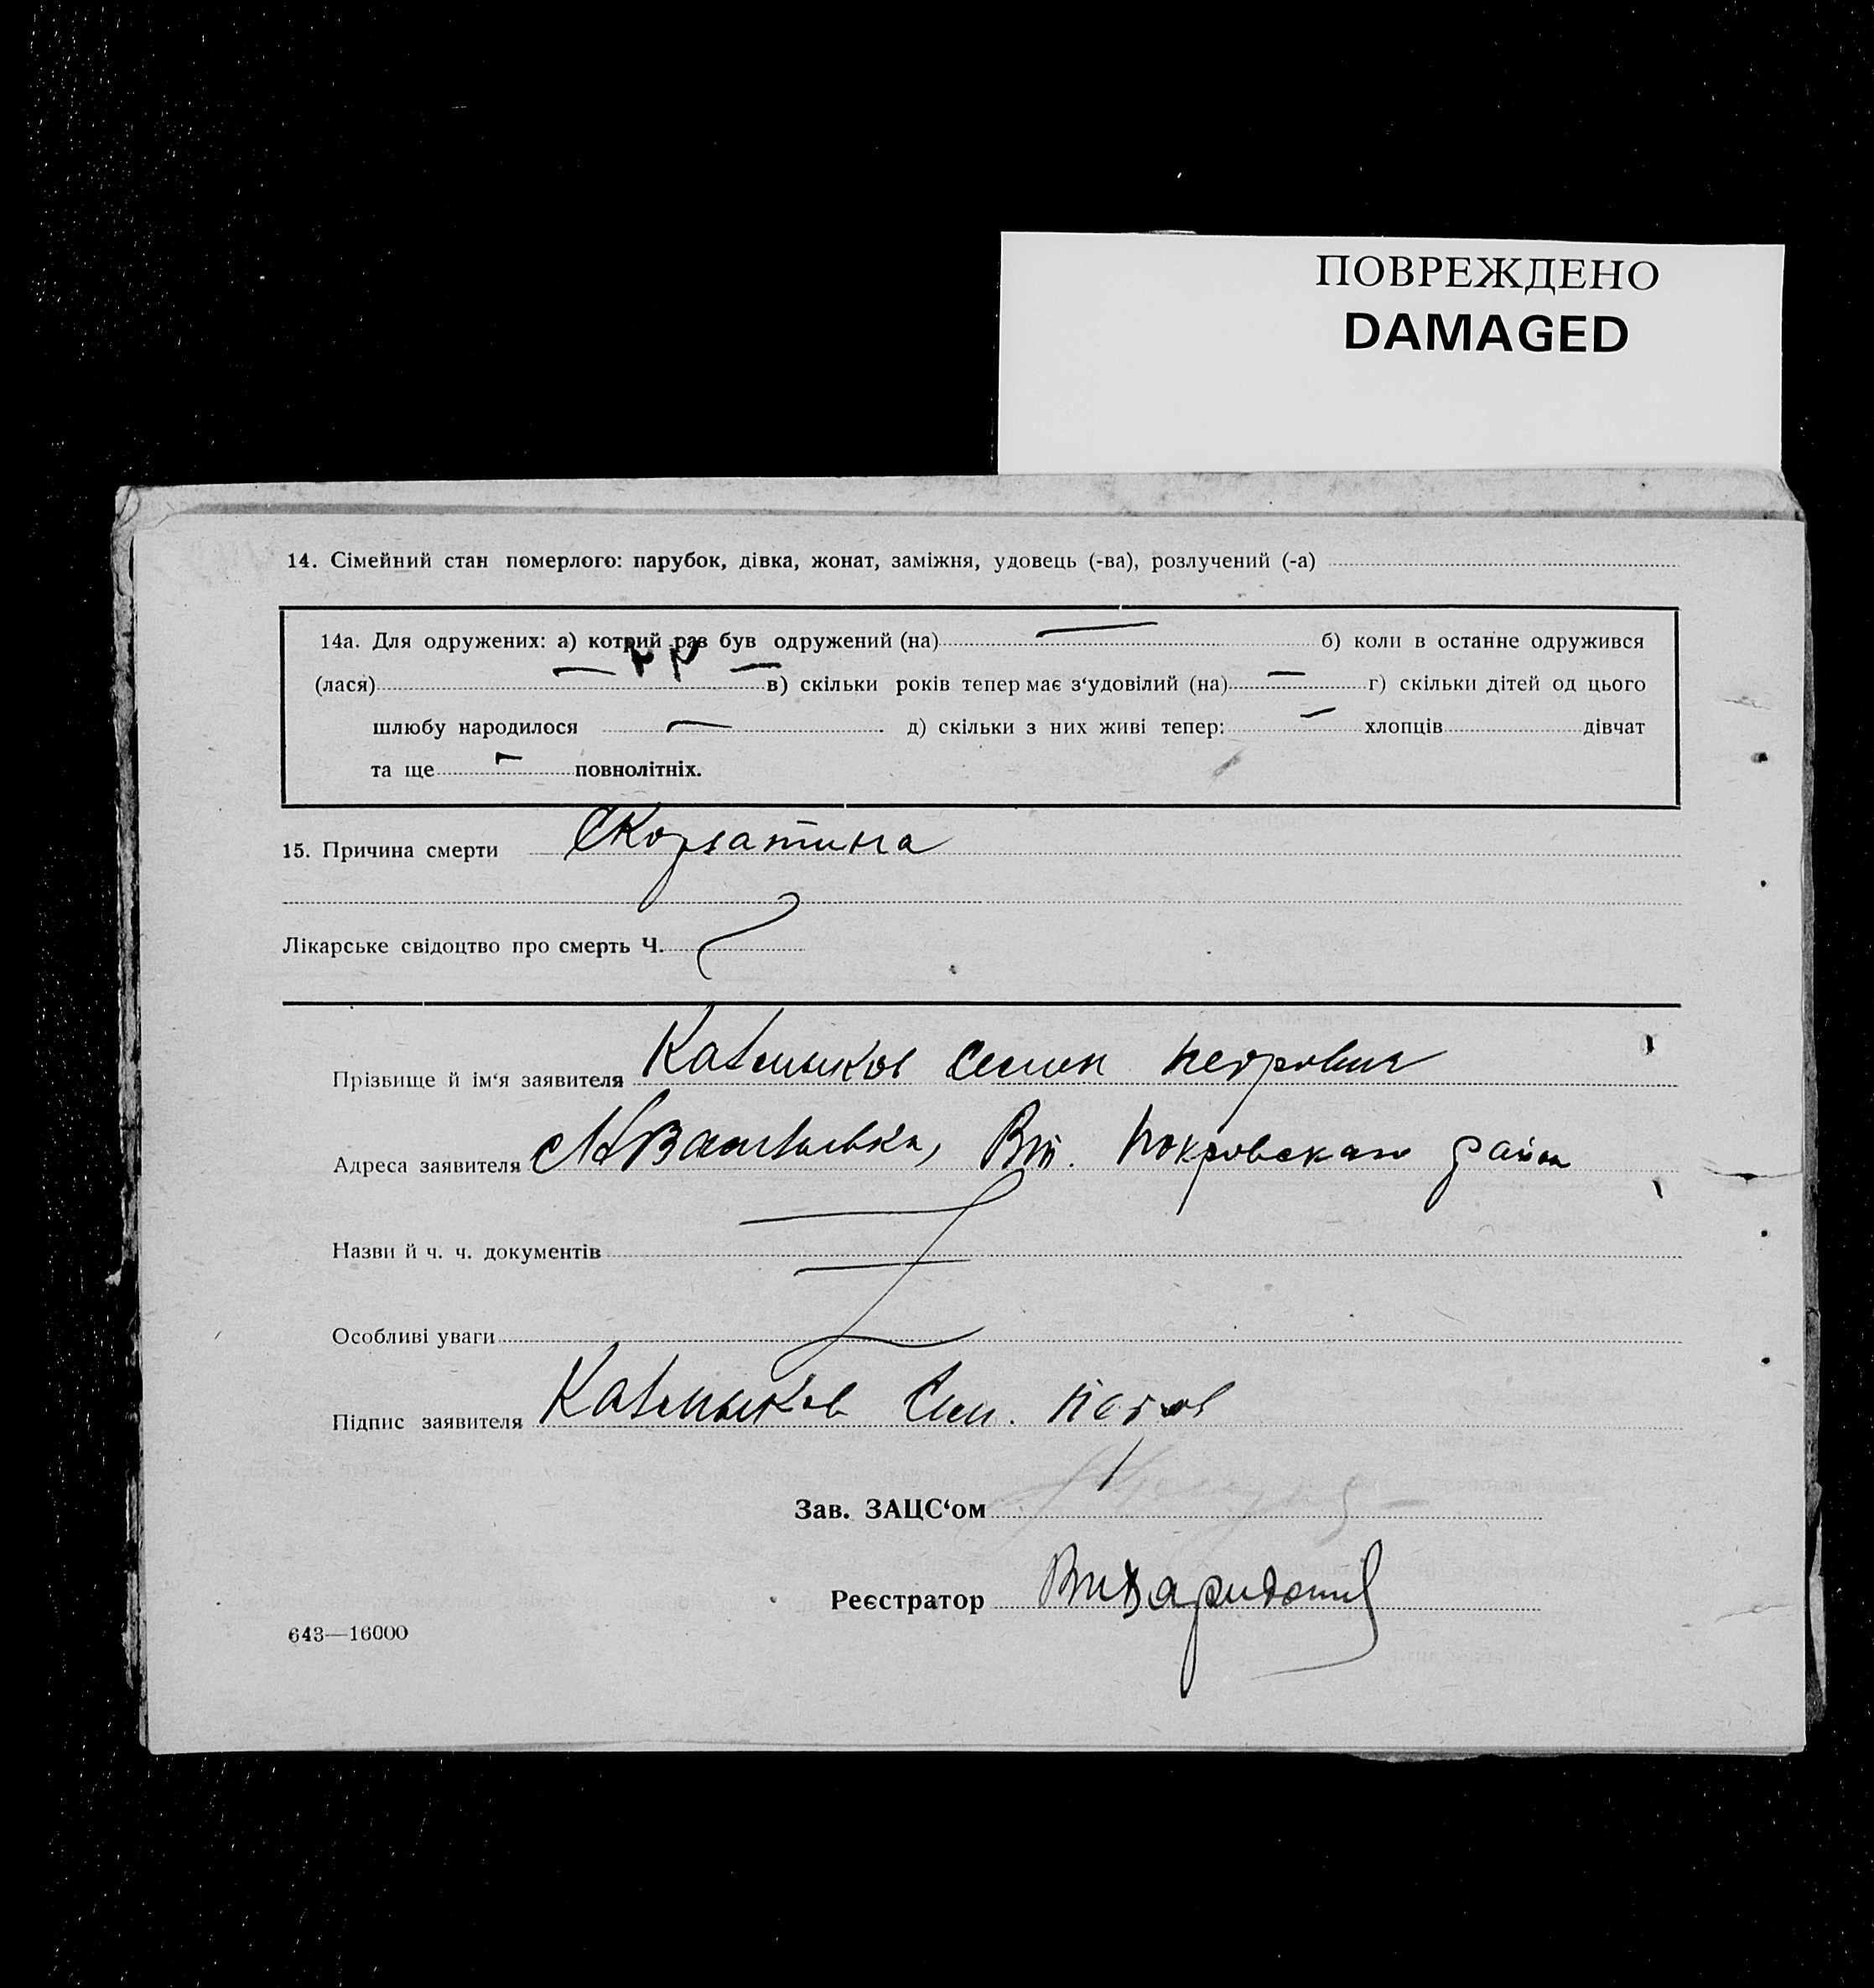 ПОВРЕЖДЕНО
DAMAGED
14. Сімейний стан померлого: парубок, дівка, жонат, заміжня, удовець (-ва), розлучений (-а)
14а. Для одружених: а) котрий раз був одружений (на) — б) коли в останнє одружився
(лася) — — в) скільки років тепер має з‘удовілий (на) — г) скільки дітей од цього
шлюбу народилося — д) скільки з них живі тепер: — хлопців дівчат
та ще — повнолітніх.
15. Причина смерти
Лікарське свідоцтво про смерть Ч.
Прізвище й ім‘я заявителя Петрович
Адреса заявителя Покровскаго района
Назви й ч. ч. документів
Особливі уваги
Підпис заявителя
Зав. ЗАЦС‘ом
Реєстратор
643—16000